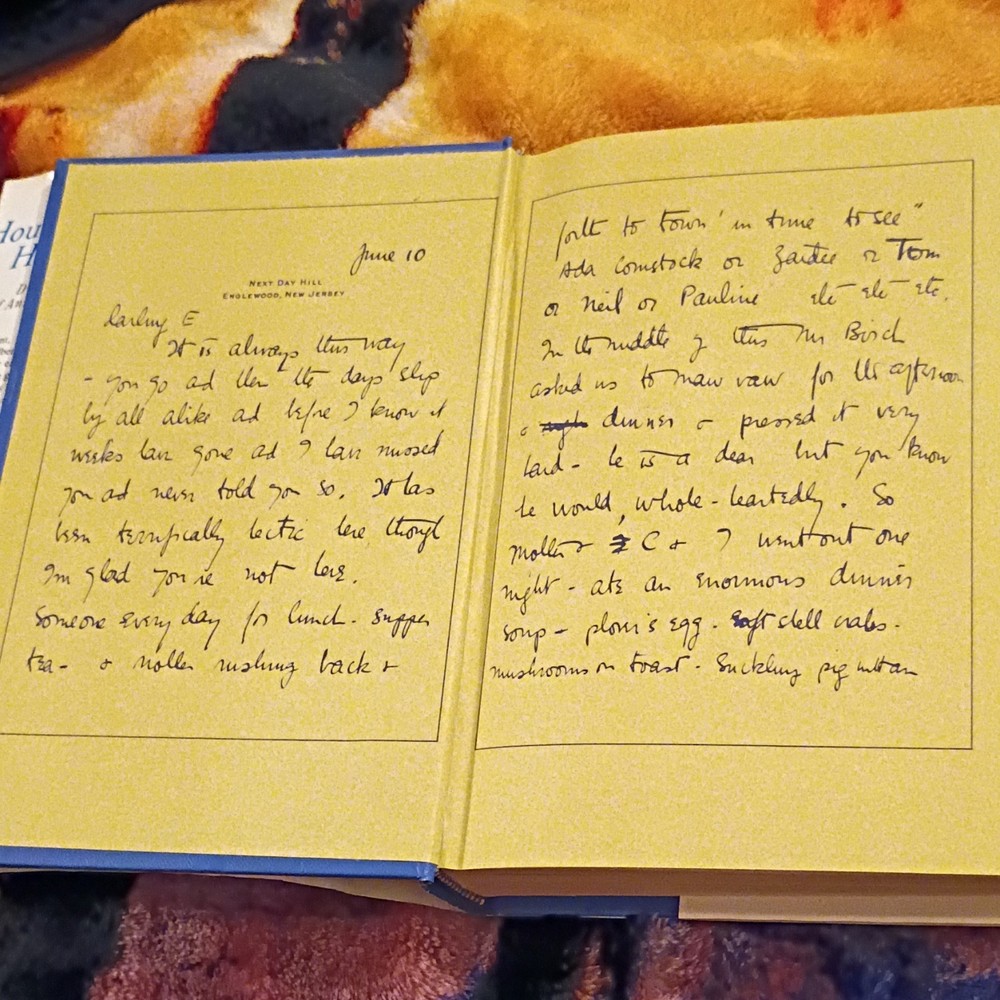 Hou
H
D
June 10
NEXT DAY HILL
ENGLEWOOD, NEW JERSEY
Darling E
It is always this way
- you go ad then the days slip
by all alike ad before I know it
weeks have gone ad I have missed
you ad never told you so. It has
been terrifically hectic here, though
I'm glad you're not here.
Someone every day for lunch - supper
tea - & Mother rushing back &
forth to town "in time to see"
Ada Comstock or or Tom
or Neil or Pauline etc etc etc.
In the middle of this Mr Birch
asked us to for the afternoon
& dinner & pressed it very
hard - he is a dear but you know
he would, whole-heartedly. So
Mother & C & I went out one
night - ate an enormous dinner
soup - plover's egg - soft shell crabs -
mushrooms on toast - Suckling pig with an